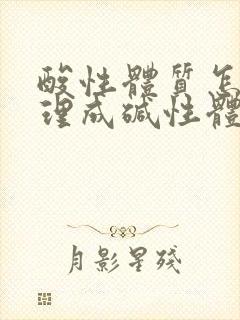 酸性體質怎
理成碱性體
月影星殘